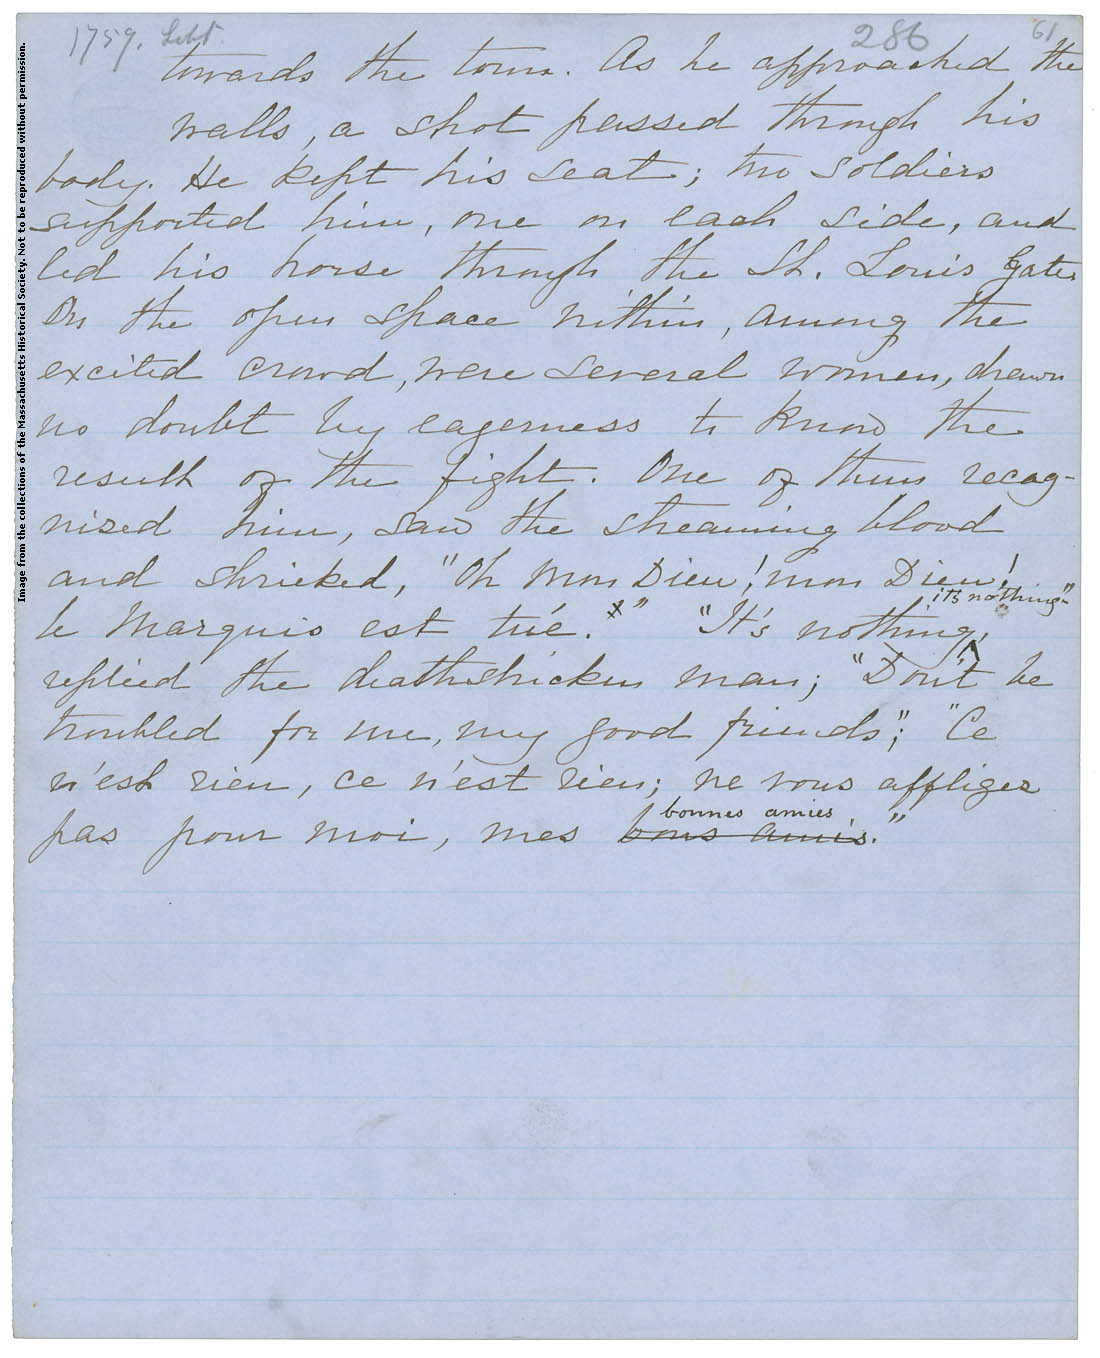 1759. Sept. 286 61
towards the town. As he approached the
walls, a shot passed through his
body. He kept his seat; two soldiers
supported him, one on each side, and
led his horse through the St. Louis Gate.
On the open space within, among the
excited crowd, were several women, drawn
no doubt by eagerness to know the
result of the fight. One of them recog-
nized him, saw the streaming blood
and shrieked, "Oh mon Dieu! mon Dieu!
it's nothing"
le Marquis est tué.x" "It's nothing,
replied the deathstricken man; "Don't be
troubled for me, my good friends"; "Ce
n'est rien, ce n'est rien; ne vous affligez
bonnes amies
pas pour moi, mes bons amis."
Image from the collections of the Massachusetts Historical Society. Not to be reproduced without permission.